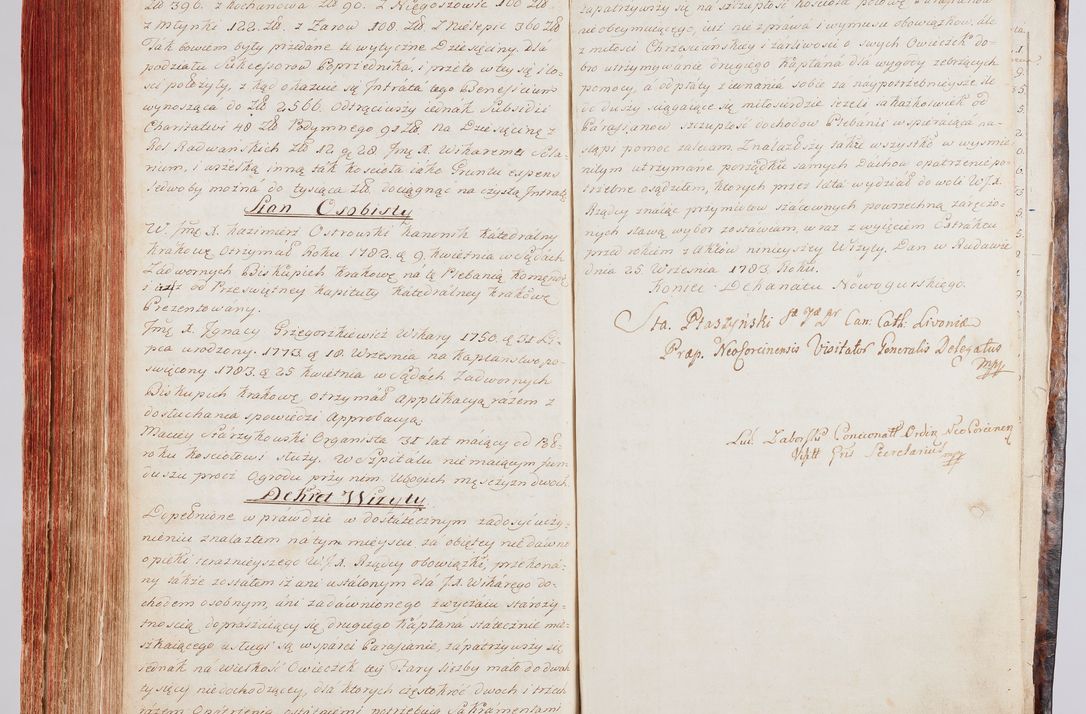 Zł 390. z Kochanowa Zł 90. z Niegoszowic 100 Zł.
z Młynki 122. Zł. z Zarow 108. Zł. z Nielepic 360 Zł.
Tak bowiem były przedane te wytyczne Dziesięciny dla
podziału Sukcessorow Poprzednika, i przeto w tey się ilo-
ści położyły, z kąd okazuie się Intrata tego Beneficium
wynosząca do Zł 2566. Odtrąciwszy iednak Subsidii
Charitativi 48 Zł Podymnego 9 Zł na Dziesięcinę z
Rol Radwańskich Zł 12. g. 28 Jmę X. Wikaremu Sala-
rium, i wszelką inną tak kościoła iako Gruntu expens
sedwoby można do tysiąca Zł. dociągnąc na czystą Intratę
Stan Osobisty
W. Jmę X. Kazimierz Ostrowski Kanonik Katedralny
Krakowę Otrzymał Roku 1782. d 9. Kwietnia w Sądach
Zadwornych Biskupich Krakowę na tę Plebanią Komendę
i od Przeswiętney Kapituły Katedralney Krakowę
Prezentowany.
Jmę X. Jgnacy Grzegorzkiewicz Wikary 1750. d 31 Li-
pca urodzony. 1773. d 18. Wrzesnia na Kapłanstwo po-
swięcony 1783. d 25 Kwietnia w Sądach Zadwornych
Biskupich Krakowę otrzymał Applikacyą razem z
dosłuchania spowiedzi Approbacyą.
Maciey Starzykowski Organista 31 lat maiący od
roku Kosciołowi służy. W Szpitalu nie maiącym fun-
duszu procz Ogrodu przy nim Ubogich męsczyzn dwoch.
Dekret Wizyty
Dopełnione w prawdzie w dostatecznym zadosyć uczy-
nieniu znalazłem na tym mieyscu za obiętey nie dawno
opieki teraznieyszego W J. X. Rządcy obowiązki, przekona-
ny także zostałem iż ani ustalonym dla J. X. Wikarego do-
chodem osobnym, ani zadawnionego zwyczaiu starozy-
tnością dopraszaiący się drugiego Kapłana statecznie mie-
szkaiącego usługi są wsparci Parafianie, zapatrzywszy się
iednak na wielkość Owieczek tey Fary liczby mało do dwoch
tysięcy niedochodzącey, dla ktorych częstokroć dwoch i trzech
razem Opatrzenia ostatniemi potrzebuią Sakramentami
zapatrzywszy się na szczupłość kościoła
nie obeymuiącego, iuż nie z prawa i wymusu obowiązkow, ale
z miłości Chrzesciańskiey i żarliwości o swych Owieczek do-
bro utrzymywanie drugiego Kapłana dla wygody żebrzących
pomocy, a odpłaty ziednania sobie za naypotrzebnieysze dla
do duszy sciągaiące się miłosierdzie iezeli iakazkolwiek od
Parafianow szczupłość dochodow Plebanii wspieraiąca na-
stąpi pomoc zalecam. Znalazłszy także wszystko w wysmie-
nitym utrzymane porządku samych Dachow opatrzenie po-
trzebne osądzłem, ktorych przez lata wydział do woli W J. X.
Rządcy znaiąc przymiotow szacownych powszechną zaręczo-
nych sławą wybor zostawiam, wraz z wyięciem Extraktu
przed rokiem z Aktow ninieyszey Wizyty. Dan w Rudawie
dnia 25. Wrzesnia 1783. Roku.
Koniec Dekanatu Nowogurskiego.
Sta. Ptaszyński Can: Cath: Livoniæ
Præp. NeoCorcinensis Visitator Generalis Delegatus
mpp
Lud. Zaborski Concionatr Ordin NeoCorcinen
Vistt Gnis Secretarius mpp